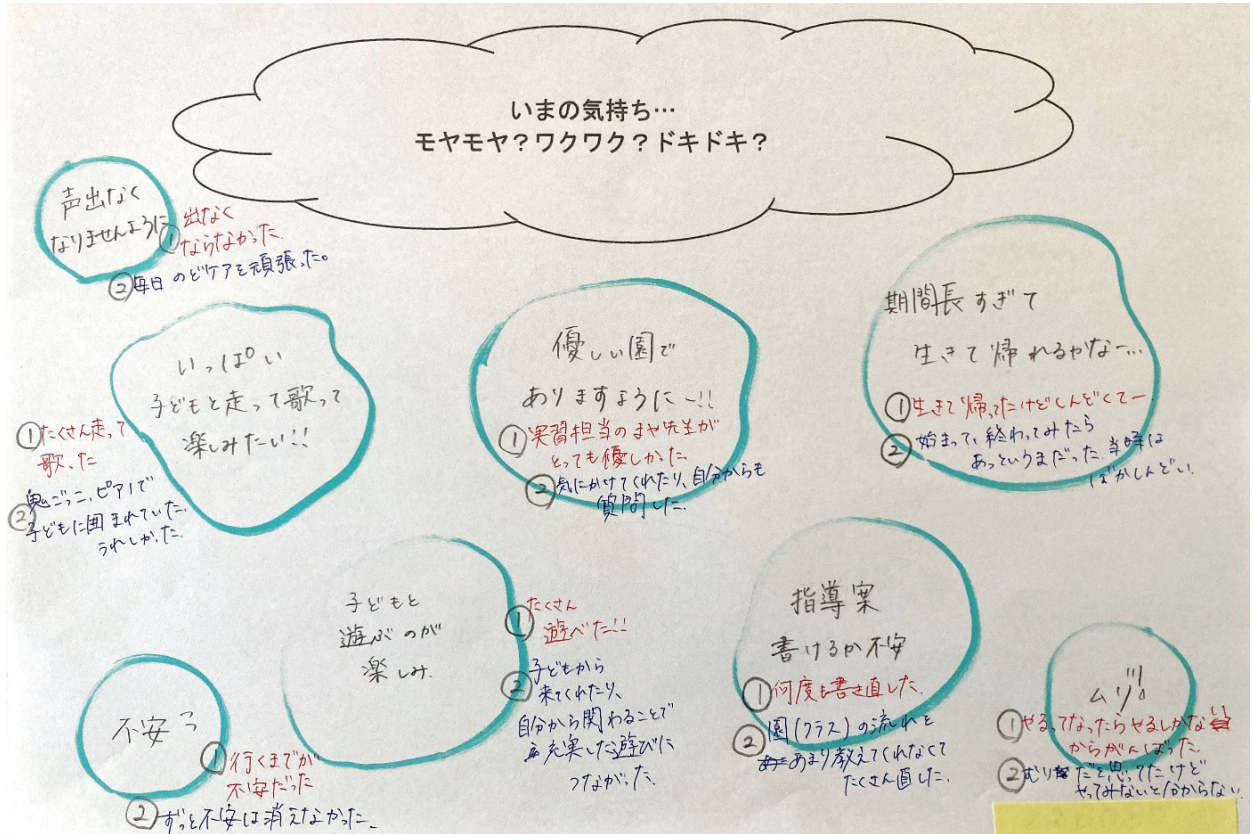 いまの気持ち…
モヤモヤ？ワクワク？ドキドキ？
声出なく
なりませんように
① 出なく
ならなかった.
② 毎日 のどケアを頑張った。
いっぱい
子どもと走って歌って
楽しみたい!!
① たくさん走って
歌った
② 鬼ごっこ、ピアノで
子どもに囲まれていた.
うれしかった.
優しい園で
ありますように－!!
① 実習担当のまや先生が
とっても優しかった.
② 気にかけてくれたり、自分からも
質問した.
期間長すぎて
生きて帰れるかなー…
① 生きて帰ったけどしんどくてー
② 始まって、終わってみたら
あっというまだった. 当時は
ばかしんどい.
子どもと
遊ぶのが
楽しみ.
① たくさん
遊べた!!
② 子どもから
来てくれたり、
自分から関わることで
充実した遊びに
つながった.
指導案
書けるか不安
① 何度も書き直した.
② 園(クラス)の流れを
あまり教えてくれなくて
たくさん直した.
不安っ
① 行くまでが
不安だった
② ずっと不安は消えなかった.
ムリ!
① やるってなったらやるしかない
からがんばった.
② むりだと思ってたけど
やってみないと分からない.